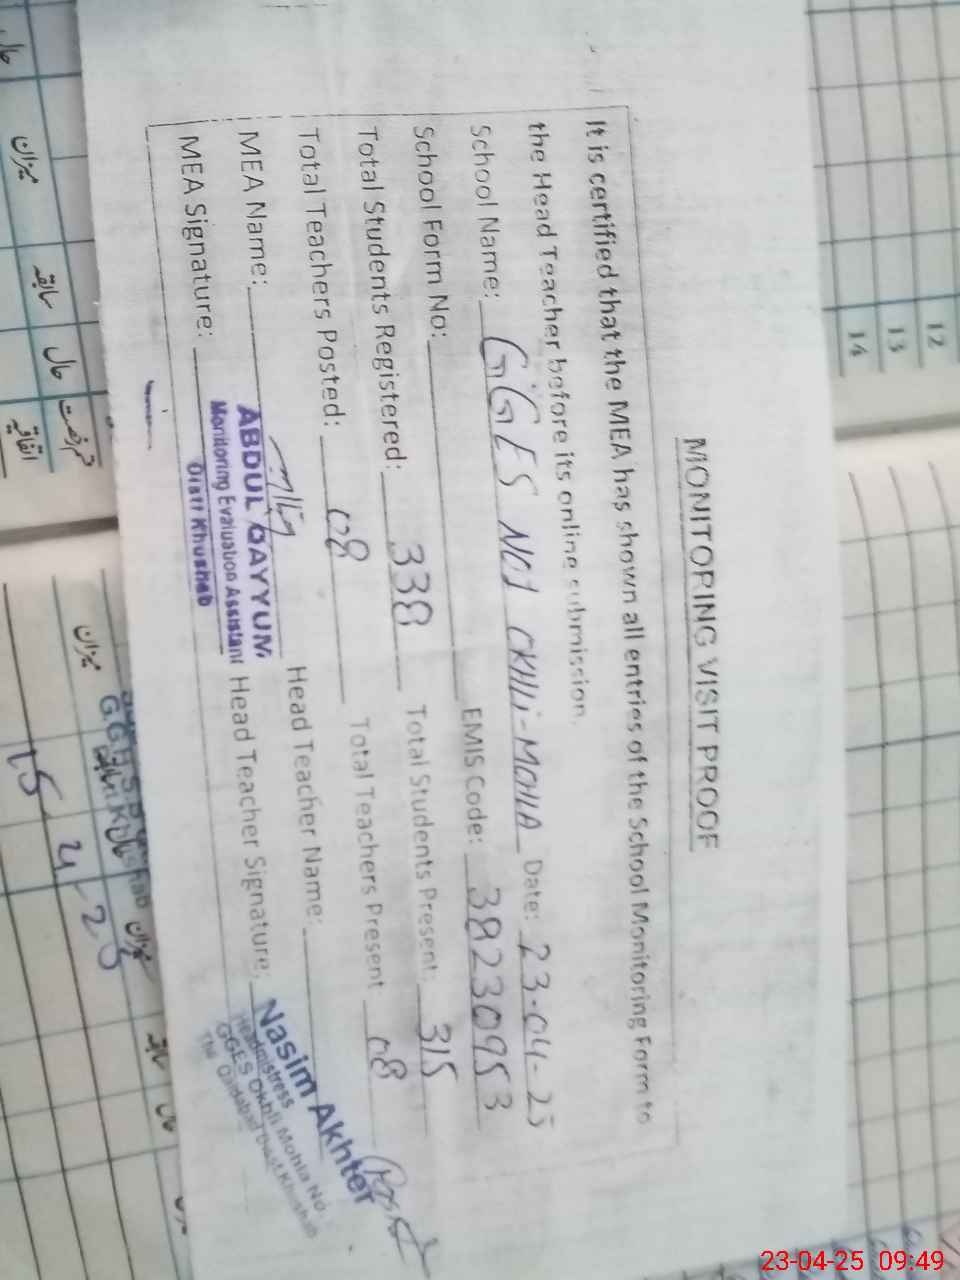 MONITORING VISIT PROOF
It is certified that the MEA has shown all entries of the School Monitoring Form to
the Head Teacher before its online submission.
School Name: GGES NO1 OKHLi-MOHLA Date: 23-04-25
School Form No: EMIS Code: 38230953
Total Students Registered: 338 Total Students Present: 315
Total Teachers Posted: 08 Total Teachers Present 08
MEA Name: Head Teacher Name:
ABDUL QAYYUM
Monitoring Evaluation Assistant
Distt Khushab
MEA Signature: Head Teacher Signature:
Nasim Akhter
Headmistress
GGES Okhli Mohla No.
12
13
14
حال
میزان
سابقہ
حال
اتفاقیہ
میزان
15
4
25
میزان
سابقہ
حال
23-04-25 09:49